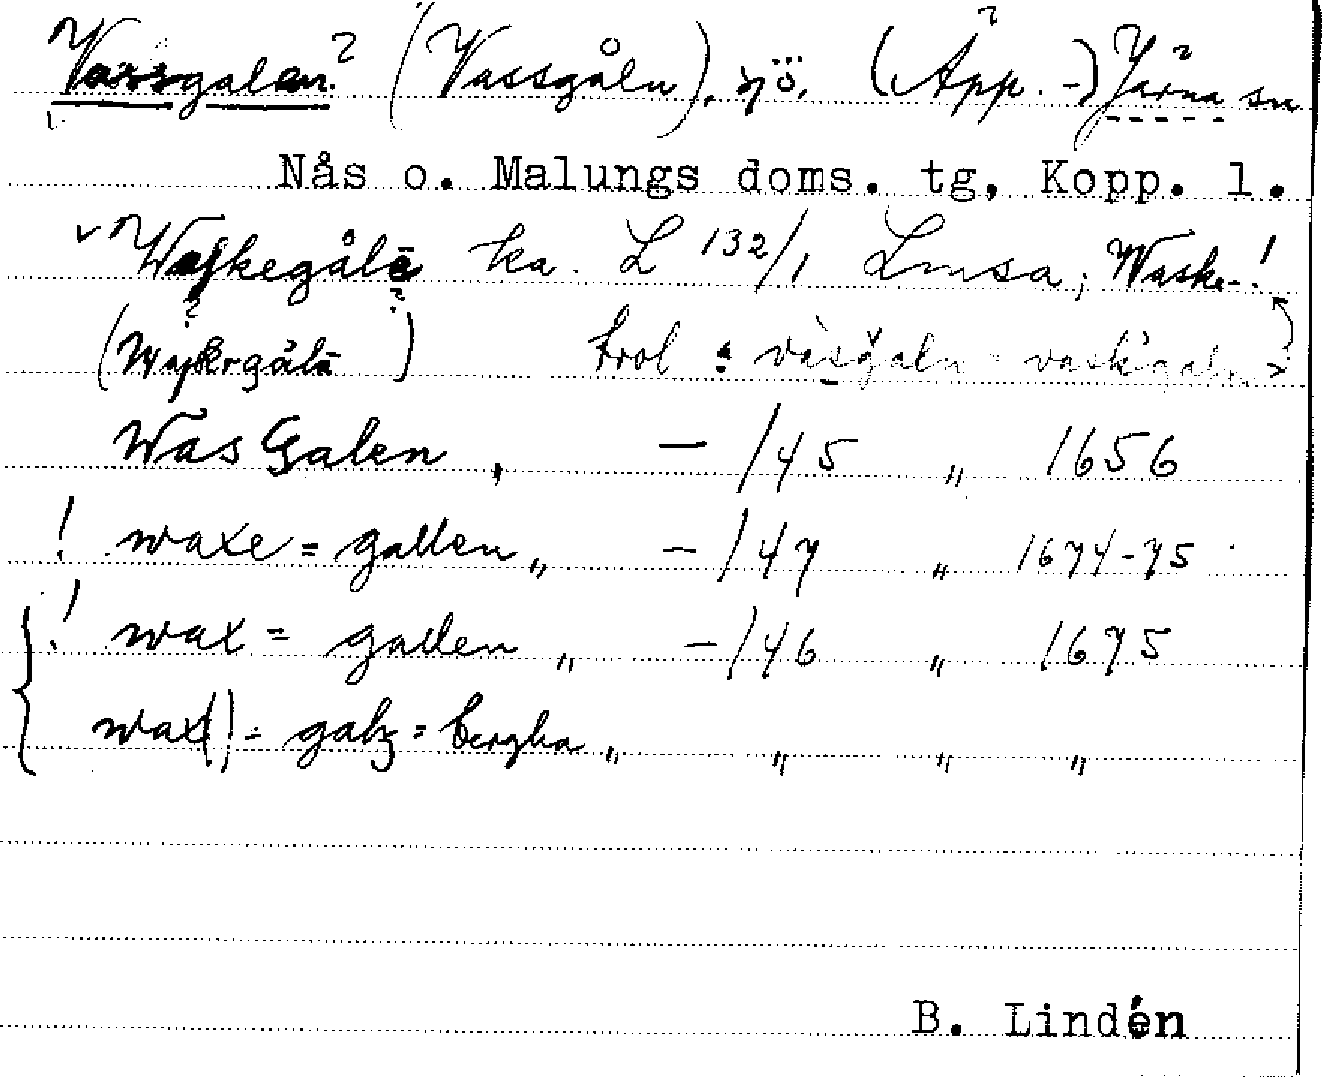 Vassgalen? (Vassgåln), sjö, (App. -) Järna sn
Nås o. Malungs doms. tg, Kopp. l.
Waskegåle ka. L 132/1 Lmsa; Waske-!
trol : vasgaln
Was Galen, — /45 „ 1656
! waxe = gallen „ — /47 „ 1674-75
! wax = gallen „ — /46 „ 1675
wax() = galz = bergha „ „ „ „
B. Lindén